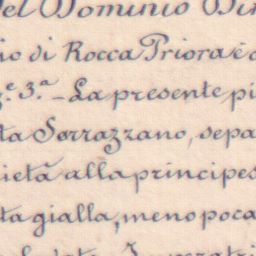 el Dominio Di
io di Rocca Priora è
e. 3.a - La presente pi
ta Serrazzano, sepa
ietà alla principes
ta gialla, meno poca